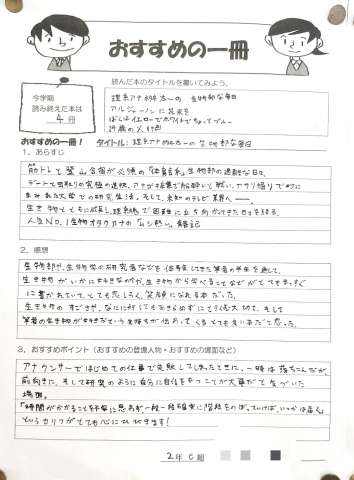 おすすめの一冊
読んだ本のタイトルを書いてみよう。
今学期
読み終えた本は
4 冊
理系アナ桝太一の 生物部な毎日
アルジャーノンに花束を
ぼくはイエローでホワイトでちょっとブルー
おすすめの一冊! タイトル: 理系アナ桝太一の生物部な毎日
1. あらすじ
筋トレと登山合宿が必須の「体育会系」生物部の過酷な日々、
アサリ掘りで
まみれた大学での研究生活。そして、未知のテレビ業界へ
生き物とともに成長し、理系魂で困難に立ち向かってきた日々を語る、
人気No.1生物オタクアナの
2. 感想
生物部や、生物学の研究者などを
生き物がいかに好きなのか、生き物から学べることなどがとてもまっすぐ
に書かれていて、とても楽しく、笑顔になれる本だった。
生き物のすごさや、なにに対してもあきらめずにとりくむ大切さ、そして
筆者の生き物が好きだという気持ちが伝わってくるとても良い本だと思った。
3. おすすめポイント(おすすめの登場人物・おすすめの場面など)
アナウンサーではじめての仕事で失敗してしまったときに、一時は落ちこんだが、
前向きに、そして研究のように自分に自信をもつことが大事だと気づいた
場面。
「時間がかかることを平気に思わず一段一段確実に階段をのぼっていけば、いつかは届く」
というセリフがとても心にひびきます!
2年 C 組